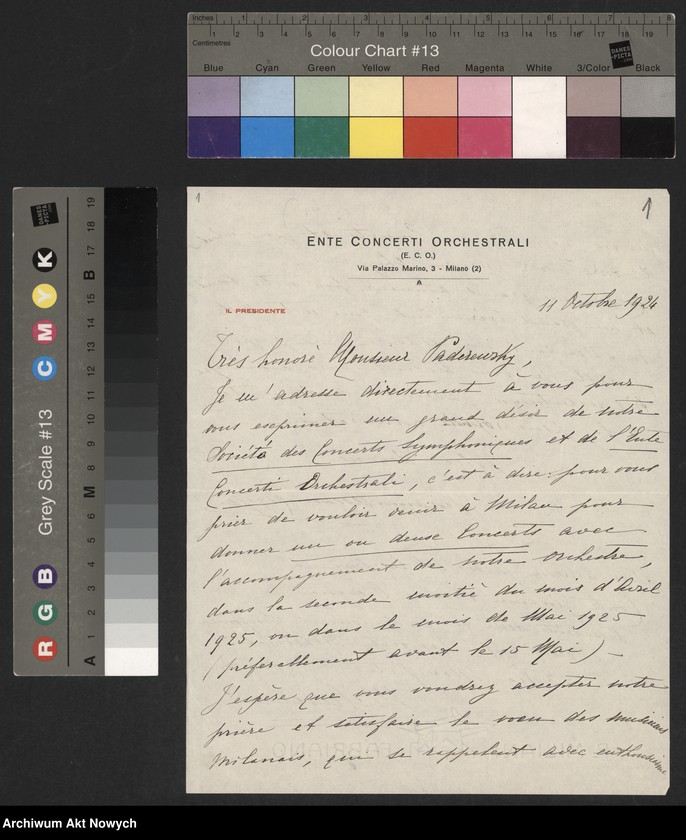 Inches 1 2 3 4 5 6 7 8
Centimetres 1 2 3 4 5 6 7 8 9 10 11 12 13 14 15 16 17 18 19
Colour Chart #13
DANES-PICTA.COM
Blue Cyan Green Yellow Red Magenta White 3/Color Black
Grey Scale #13
DANES-PICTA.COM
R G B C M Y K
A 1 2 3 4 5 6 M 8 9 10 11 12 13 14 15 B 17 18 19
1
1
ENTE CONCERTI ORCHESTRALI
(E. C. O.)
Via Palazzo Marino, 3 - Milano (2)
IL PRESIDENTE
11 Octobre 1924
Très honoré Monsieur Paderewsky,
Je m'adresse directement à vous pour
vous esceprimer un grand désir de notre
Società des Concerts Symphoniques et de l'Ente
Concerti Orchestrali, c'est à dire: pour vous
prier de vouloir venir à Milan pour
donner un ou deuse Concerts avec
l'accompagnement de notre orchestre,
dans la seconde moitié du mois d'Avril
1925, ou dans le mois de Mai 1925
(préferablement avant le 15 Mai) —
J'espère que vous voudrez accepter notre
prière et satisfaire le voeu des musiciens
Milanais, qui se rappelent avec enthousiasme
FABRIANO
Archiwum Akt Nowych